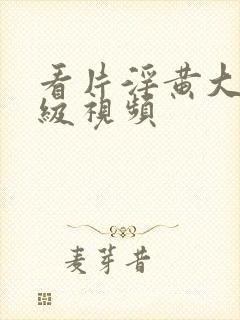 看片淫黄大
級視頻
麦芽昔